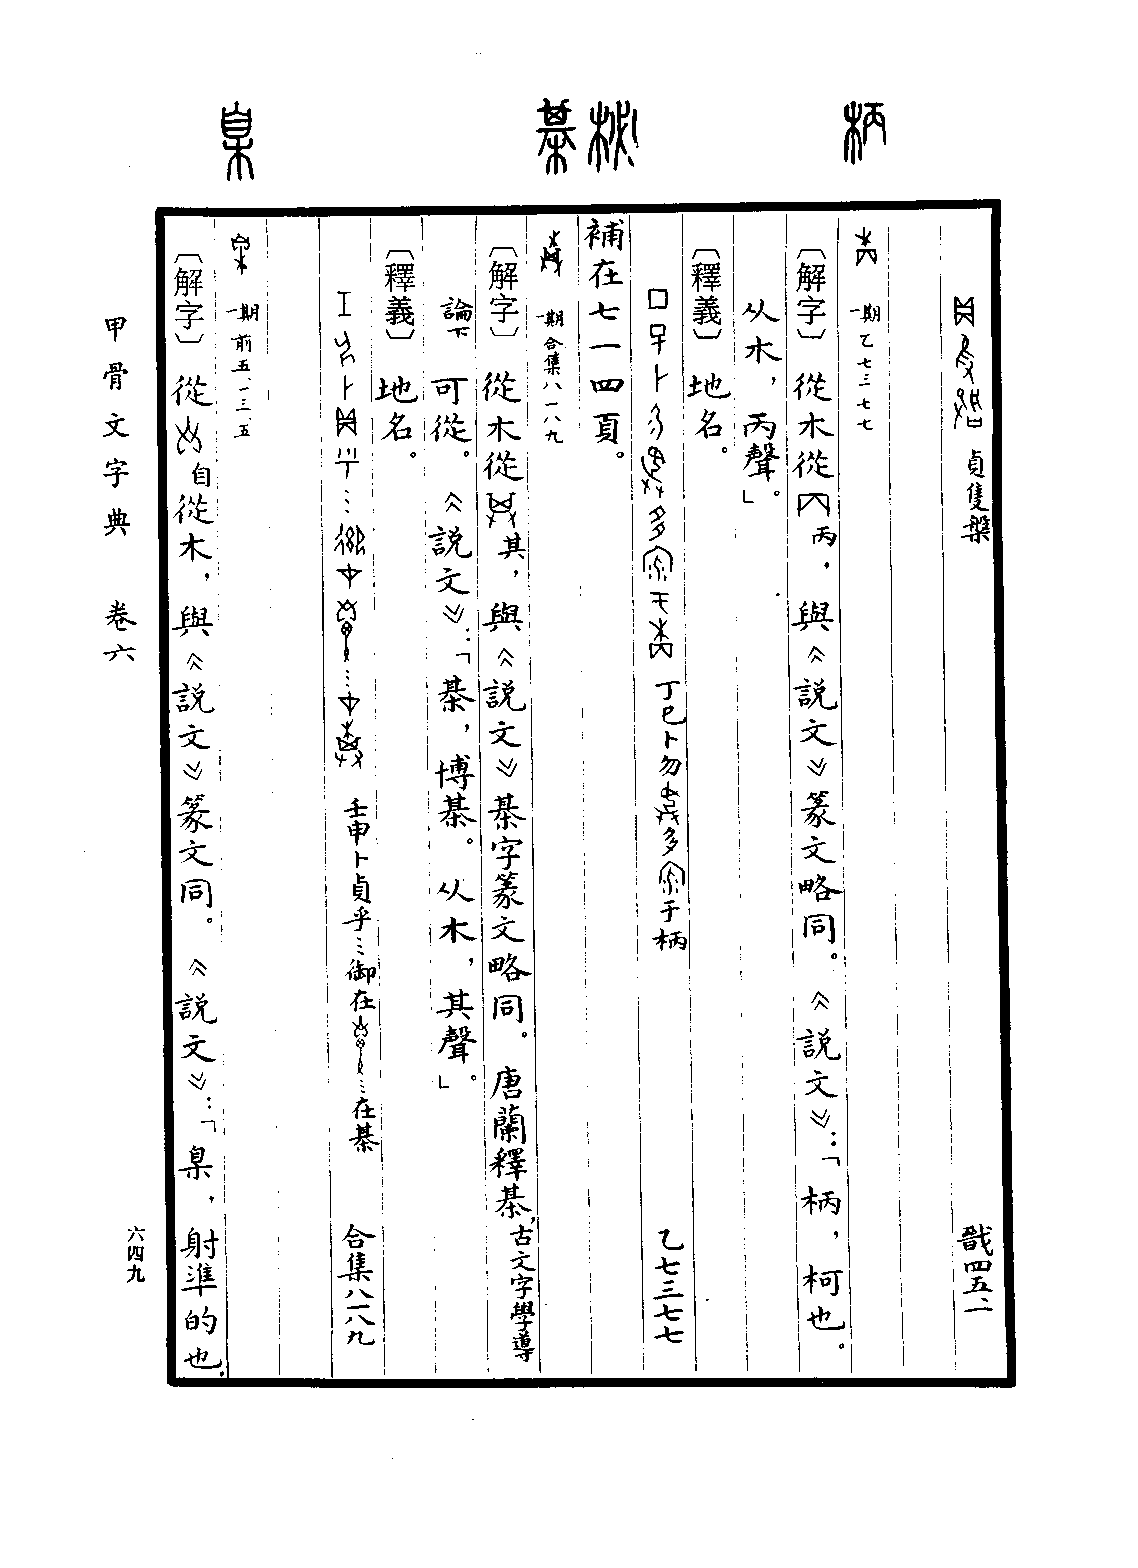 柄
棊
臬
貞隻槃 戩四五·二
一期 乙七三七七
〔解字〕 從木從丙，與《說文》篆文略同。《說文》：「柄，柯也。
从木，丙聲。」
〔釋義〕 地名。
丁巳卜勿 多 于柄 乙七三七七
補在七一四頁。
一期 合集八一八九
〔解字〕 從木從其，與《說文》棊字篆文略同。唐蘭釋棊，古文字學導
論下 可從。《說文》：「棊，博棊。从木，其聲。」
〔釋義〕 地名。
壬申卜貞乎…御在 …在棊 合集八一八九
一期 前五·一三·五
〔解字〕 從自從木，與《說文》篆文同。《說文》：「臬，射準的也。
甲骨文字典 卷六
六四九